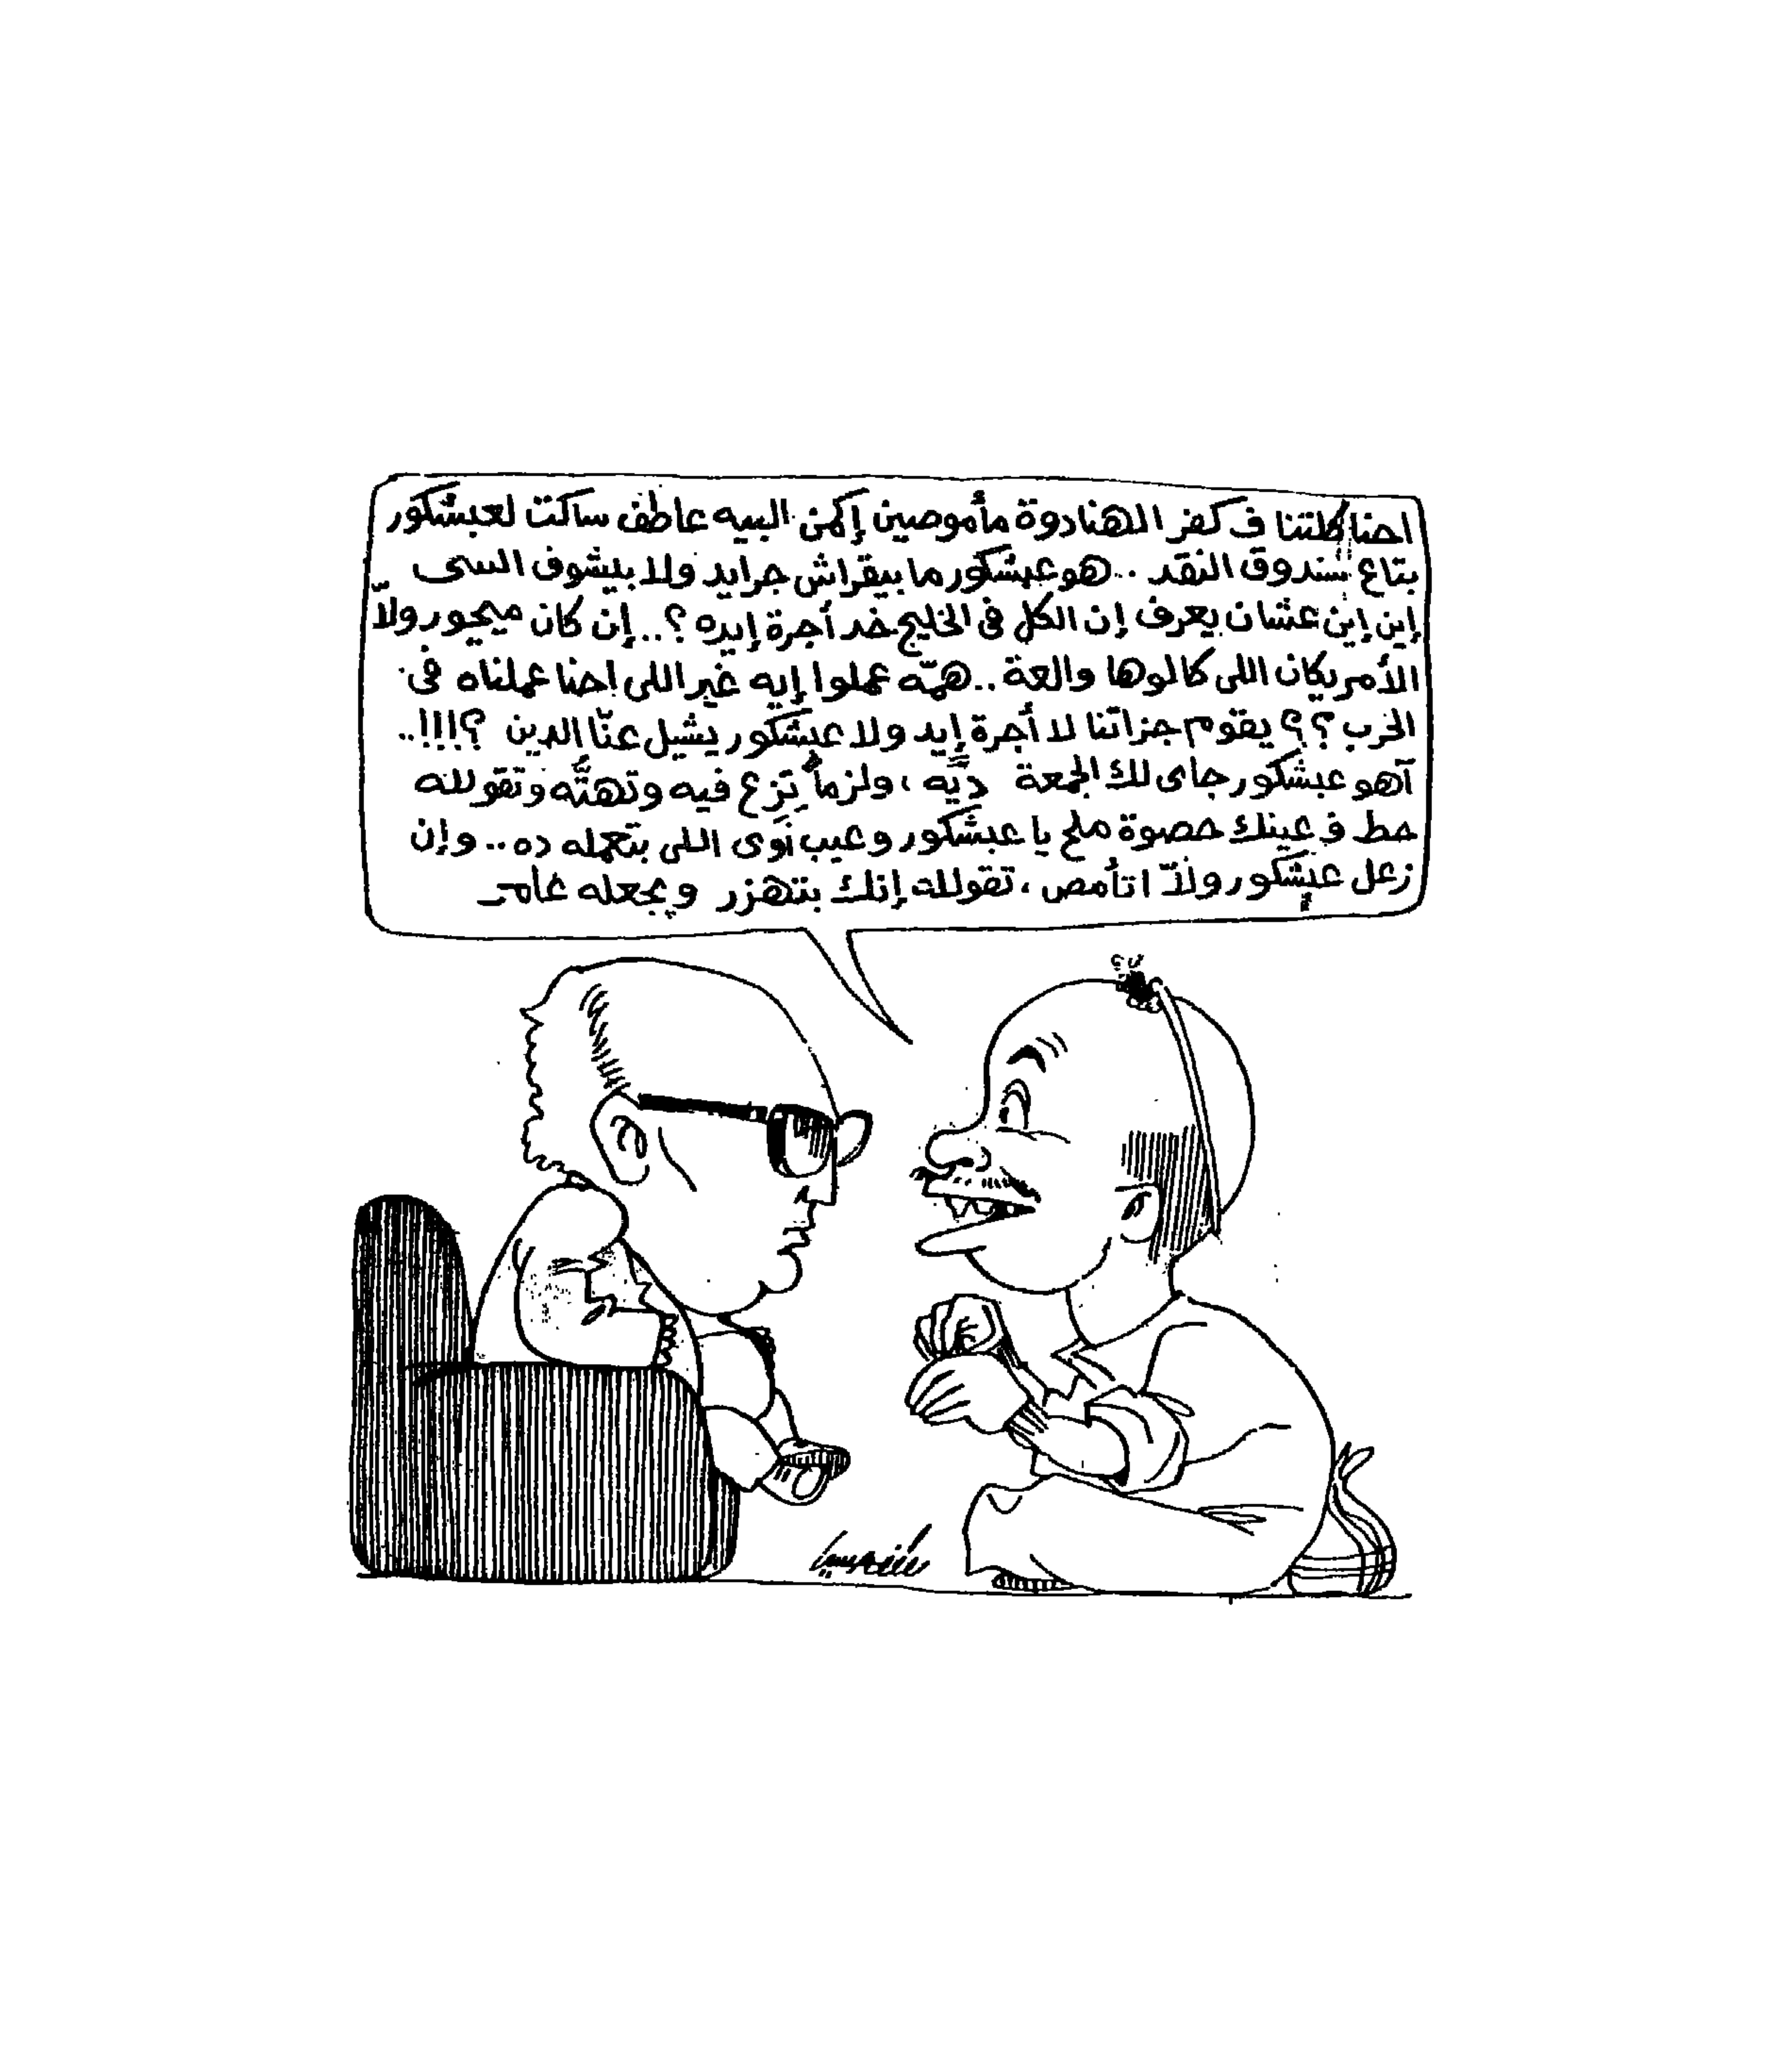 احنا كلتنا ف كفر الهنادوة مأموصين إكمن البيه عاطف ساكت لعبشكور
بتاع سندوق النقد .. هو عبشكور ما بيقراش جرايد ولا بيشوف السى
إين إين عشان يعرف إن الكل فى الخليج خد أجرة إيده ؟.. إن كان ميجور ولاّ
الأمريكان اللى كالوها والعة .. همّه عملوا إيه غير اللى احنا عملناه فى
الحرب ؟؟ يقوم جزاتنا لا أجرة إيد ولا عبشكور يشيل عنّا الدين ؟!!!..
آهو عبشكور جاى لك الجمعة ديّه ، ولزماً تزع فيه وتهتّه وتقولله
حط ف عينك حصوة ملح يا عبشكور وعيب نوى اللى بتعمله ده .. وإن
زعل عبشكور ولاّ اتأمص ، تقولله إنك بتهزر ويجعله عامر